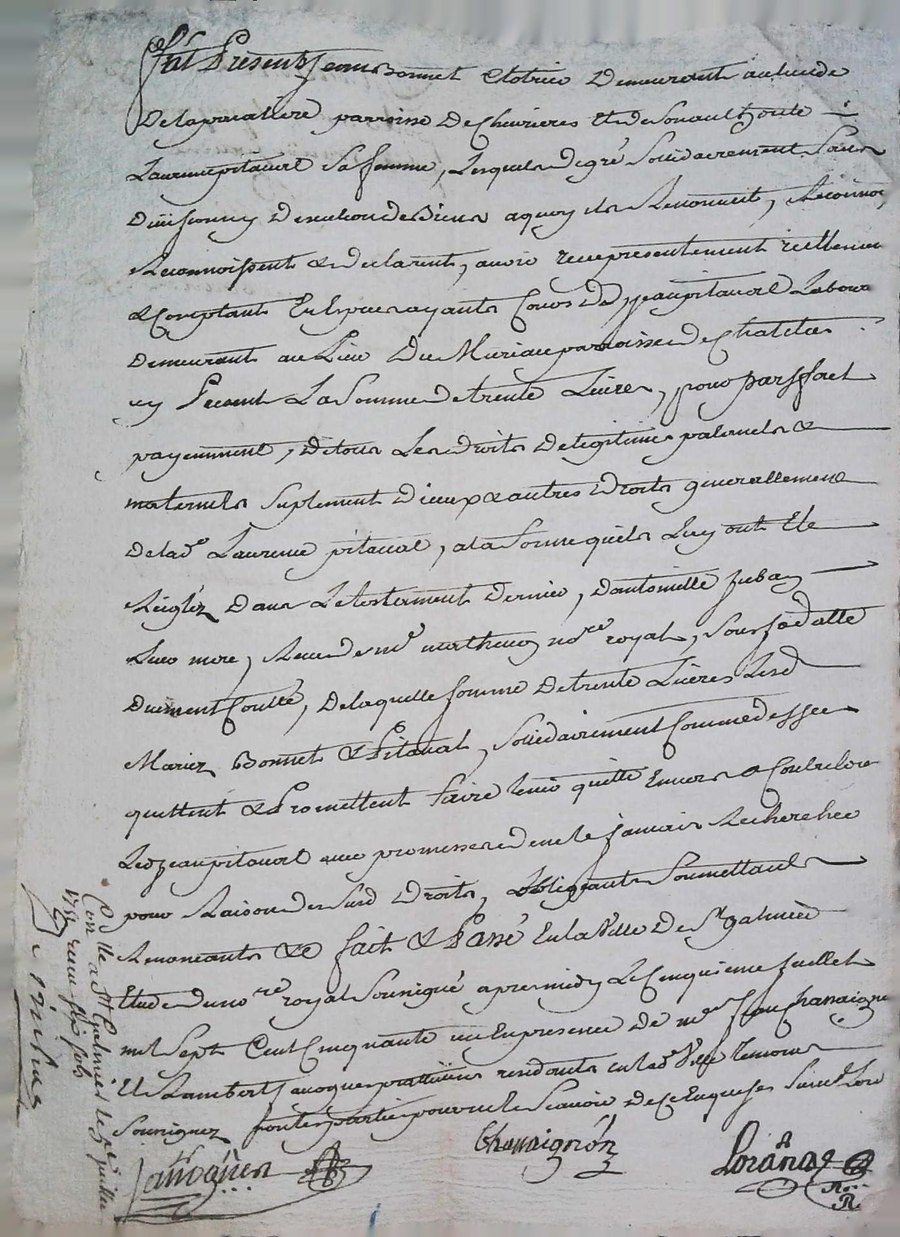 fut Present Jean Bonnet demeurant au lieu de
de la parroisse De Chevrieres Et de Son authorité
Laurence pitaval Sa femme, Lesquels de gré Solidairement Sans
Division ny Discution de Biens a quoy ils Renoncent,
Reconnoissent & declarent, avoir receu presentement reellement
& Comptant En Especes ayants Cours De Jean pitaval Labour
Demeurant au Lieu Du parroisse de Chatelus
icy Present La Somme de trente Livres, pour parffaict
payemment, De tous Les Droits De legitimes paternels &
maternels Suplement D'iceux & autres Droits generallement
de lade Laurence pitaval, a la Somme quels Luy ont Ete
Reiglez Dans Le testement Dernier, D'antoinette
Leur mere, Receu de me notre royal, Sous sa datte
Duement Controllé, De laquelle Somme De trente Livres Lesd
Mariez Bonnet & Pitaval, Sollidairement Comme dessus
quittent & Promettent faire tenir quitte Envers & Contre tous
Led Jean pitaval avec promesse de ne le jamais Recherchér
pour Raison de Susd Droits, Obligeants Soumettants
Renonceants &c fait & Passé En la Ville De St galmier
Etude du nore royal Sousigné apres midy Le Cinquieme Juillet
mil Sept Cent Cinquante un En presence De mre Jean Chanaignon
Et Lambert Jacoquer pratticiens residants en lade Ville temoins
Sousignez, pour ne le Scavoir De Ce Enquises Suivt L'ord
Chanaignon
Con lle a St Galmier le 5e juillet
1751 receu six sols